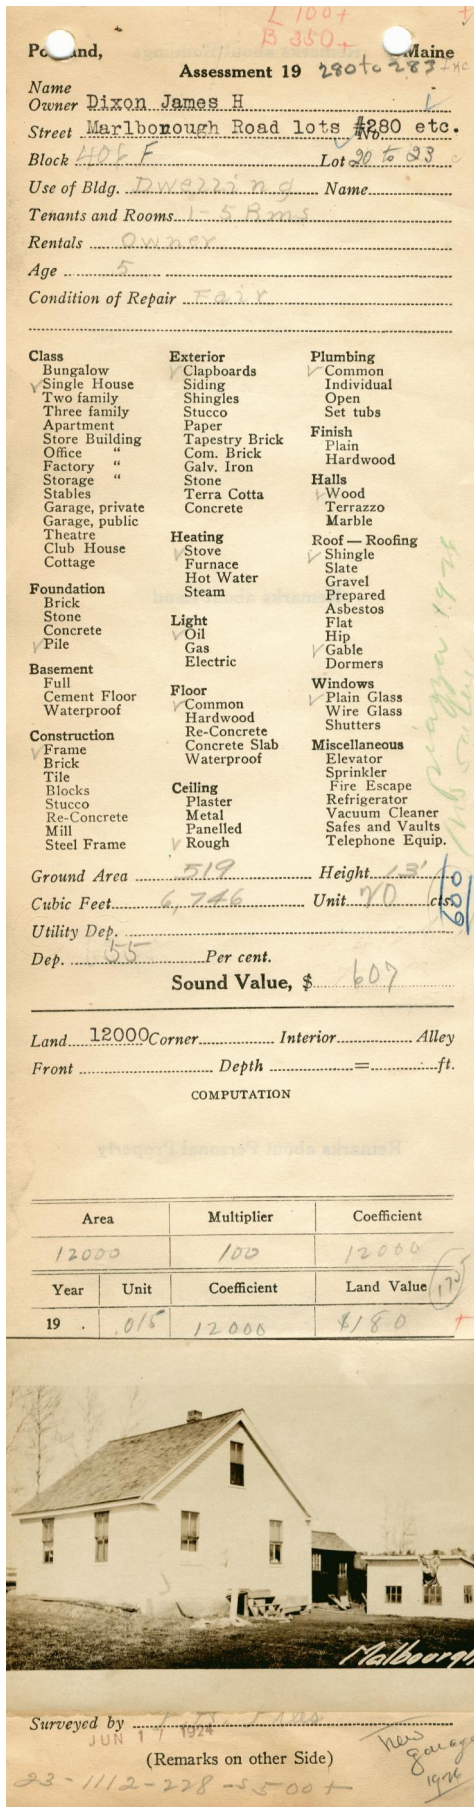 L 100+
B 350+
Po land, Maine
Assessment 19 280 to 283 Inc
Name
Owner Dixon James H
Street Marlborough Road lots #280 etc.
Block 406 F Lot 20 to 23
Use of Bldg. Dwelling Name
Tenants and Rooms 1-5 Rms
Rentals Owner
Age 5
Condition of Repair Fair
Class
Bungalow
✓ Single House
Two family
Three family
Apartment
Store Building
Office "
Factory "
Storage "
Stables
Garage, private
Garage, public
Theatre
Club House
Cottage
Foundation
Brick
Stone
Concrete
✓ Pile
Basement
Full
Cement Floor
Waterproof
Construction
✓ Frame
Brick
Tile
Blocks
Stucco
Re-Concrete
Mill
Steel Frame
Exterior
✓ Clapboards
Siding
Shingles
Stucco
Paper
Tapestry Brick
Com. Brick
Galv. Iron
Stone
Terra Cotta
Concrete
Heating
✓ Stove
Furnace
Hot Water
Steam
Light
✓ Oil
Gas
Electric
Floor
✓ Common
Hardwood
Re-Concrete
Concrete Slab
Waterproof
Ceiling
Plaster
Metal
Panelled
✓ Rough
Plumbing
✓ Common
Individual
Open
Set tubs
Finish
Plain
Hardwood
Halls
✓ Wood
Terrazzo
Marble
Roof — Roofing
✓ Shingle
Slate
Gravel
Prepared
Asbestos
Flat
Hip
✓ Gable
Dormers
Windows
✓ Plain Glass
Wire Glass
Shutters
Miscellaneous
Elevator
Sprinkler
Fire Escape
Refrigerator
Vacuum Cleaner
Safes and Vaults
Telephone Equip.
piazza 1926
Ground Area 519 Height 13'
Cubic Feet 6,746 Unit 20 cts.
600
Utility Dep.
Dep. 55 Per cent.
Sound Value, $ 607
Land 12000 Corner Interior Alley
Front Depth = ft.
COMPUTATION
Area Multiplier Coefficient
12000 100 12000
Year Unit Coefficient Land Value 175
19 . .015 12000 $180 +
Malbourgh
Surveyed by
JUN 17 1924
(Remarks on other Side)
New garage 1926
23-1112-228-$500+